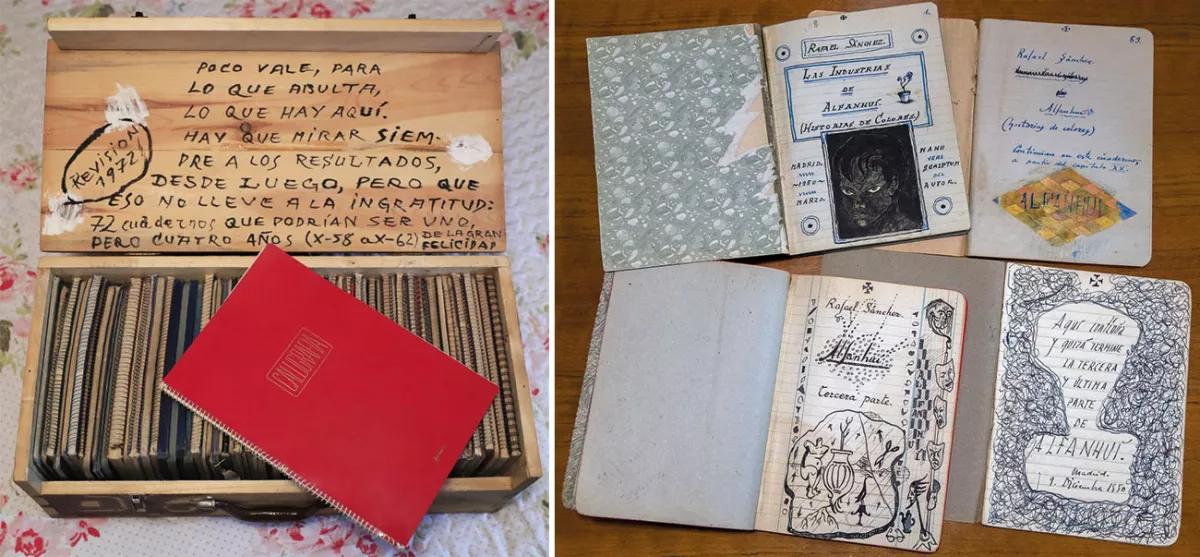 POCO VALE, PARA
LO QUE ABULTA,
LO QUE HAY AQUÍ.
HAY QUE MIRAR SIEM-
PRE A LOS RESULTADOS,
DESDE LUEGO, PERO QUE
ESO NO LLEVE A LA INGRATITUD:
72 cuadernos QUE PODRÍAN SER UNO,
PERO CUATRO AÑOS (X-58 a X-62) DE LA GRAN
FELICIDAD
Revisión
1972
CALIGRAFIA
1.
RAFAEL SÁNCHEZ.
LAS INDUSTRIAS
DE
ALFANHUÍ.
(HISTORIAS DE COLORES.)
MADRID.
~1950~
MARZO.
MANU
SCRIPTUM
DEL
AUTOR.
Rafael Sánchez.
Alfanhuí
(historias de colores)
Continúan en este cuaderno
a partir del capítulo XX.
ALFANHUI
Rafael Sánchez.
Alfanhuí.
Tercera parte.
Aquí continúa
Y QUIZÁ TERMINE
LA TERCERA
Y ÚLTIMA
PARTE
DE
ALFANHUÍ.
Madrid.
9. Diciembre 1950